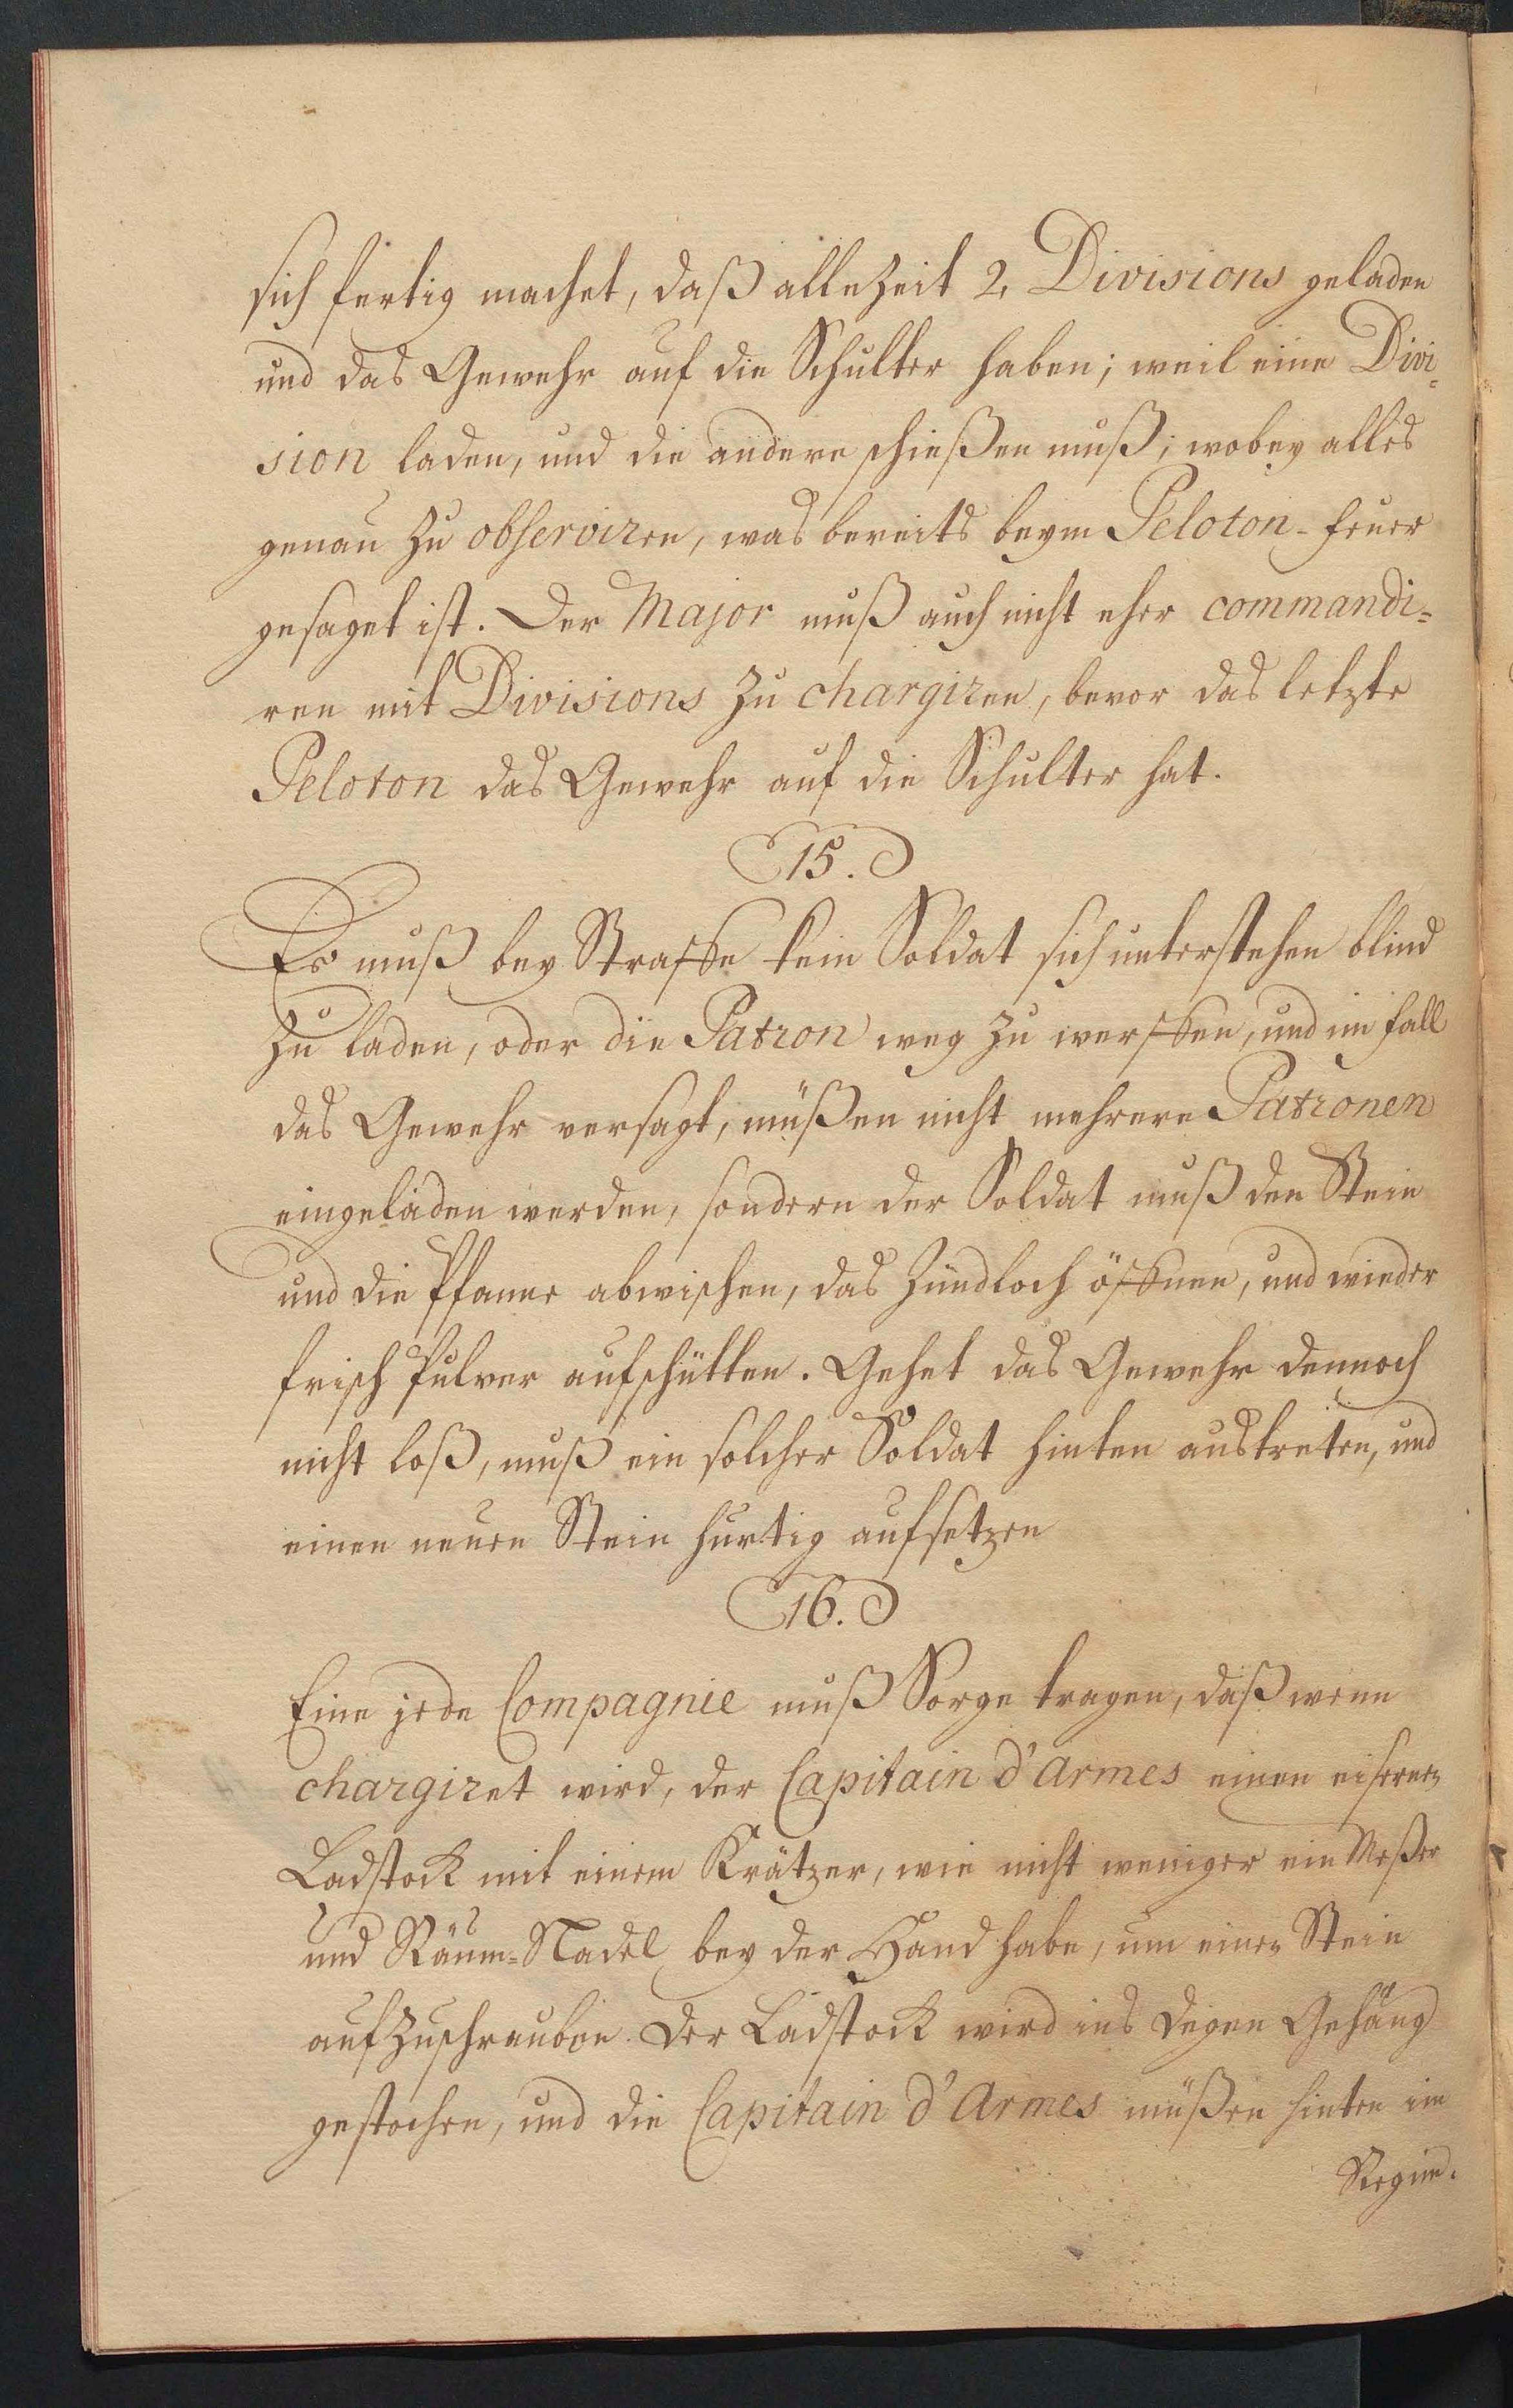 sich fertig machet, daß allezeit 2. Divisions geladen
und das Gewehr auf die Schulter haben; weil eine Divi-
sion laden, und die andere schießen muß; wobey alles
genau zu observiren, was bereits beym Peloton-feuer
gesaget ist. Der Major muß auch nicht eher commandi-
ren mit Divisions zu chargiren, bevor das letzte
Peloton das Gewehr auf die Schulter hat.
15.
Es muß bey Straffe kein Soldat sich unterstehen blind
zu laden, oder die Patron weg zu werffen, und im fall
das Gewehr versagt, müßen nicht mehrere Patronen
eingeladen werden, sondern der Soldat muß den Stein
und die Pfanne abwischen, das Zündloch öffnen, und wieder
frisch Pulver aufschütten. Gehet das Gewehr dennoch
nicht loß, muß ein solcher Soldat hinten austreten, und
einen neuen Stein hurtig aufsetzen
16.
Eine jede Compagnie muß Sorge tragen, daß wenn
chargiret wird, der Capitain d'Armes einen eisernen
Ladstock mit einem Krätzer, wie nicht weniger ein Meßer
und Räum-Nadel bey der Hand habe, um einen Stein
aufzuschrauben. Der Ladstock wird ins Degen Gehäng
gestochen, und die Capitain d'Armes müßen hinten im
Regim-